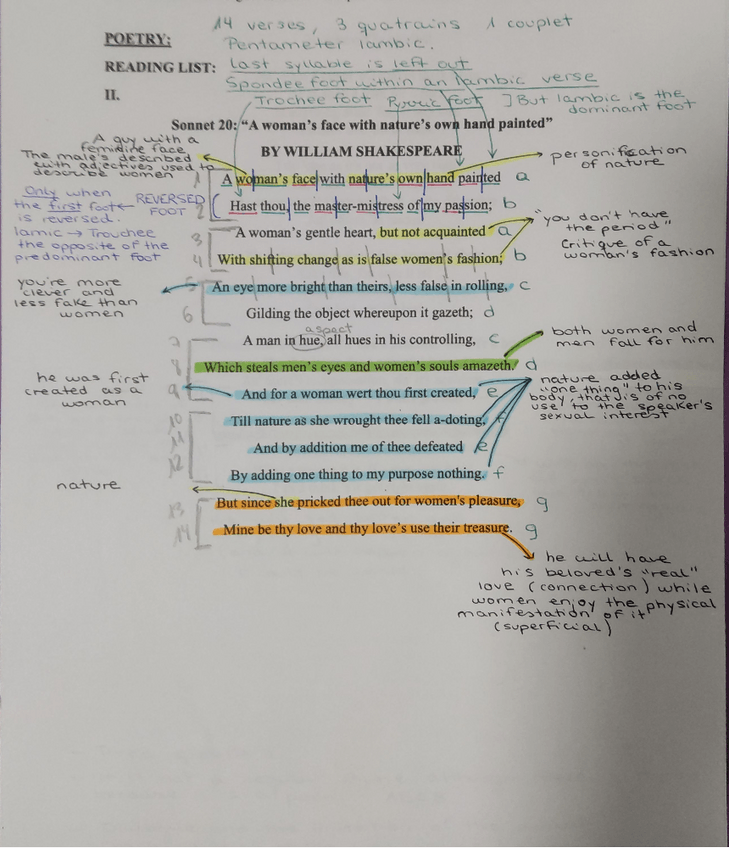 14 verses, 3 quatrains 1 couplet
POETRY:
Pentameter Iambic.
READING LIST: last syllable is left out
Spondee foot within an Iambic verse
II.
Trochee foot Pyrric foot ] But Iambic is the dominant foot
Sonnet 20: “A woman’s face with nature’s own hand painted”
BY WILLIAM SHAKESPEARE
A guy with a
femidine face
The male's described
with adjectives used to
describe women
personification
of nature
1 A woman’s face with nature’s own hand painted a
Only when
the first foot ← REVERSED FOOT
is reversed.
Iamic → Trouchee
the opposite of the
predominant foot
2 Hast thou, the master-mistress of my passion; b
3 A woman’s gentle heart, but not acquainted a
"you don't have
the period"
Critique of a
woman's fashion
4 With shifting change as is false women’s fashion; b
you're more
clever and
less fake than
women
5 An eye more bright than theirs, less false in rolling, c
6 Gilding the object whereupon it gazeth; d
aspect
7 A man in hue, all hues in his controlling, c
both women and
men fall for him
8 Which steals men’s eyes and women’s souls amazeth. d
he was first
created as a
woman
nature added
"one thing" to his
body, that is of no
use to the speaker's
sexual interest
9 And for a woman wert thou first created, e
10 Till nature as she wrought thee fell a-doting, f
11 And by addition me of thee defeated e
12 By adding one thing to my purpose nothing. f
nature
13 But since she pricked thee out for women's pleasure, g
14 Mine be thy love and thy love’s use their treasure. g
he will have
his beloved's "real"
love (connection) while
women enjoy the physical
manifestation of it
(superficial)